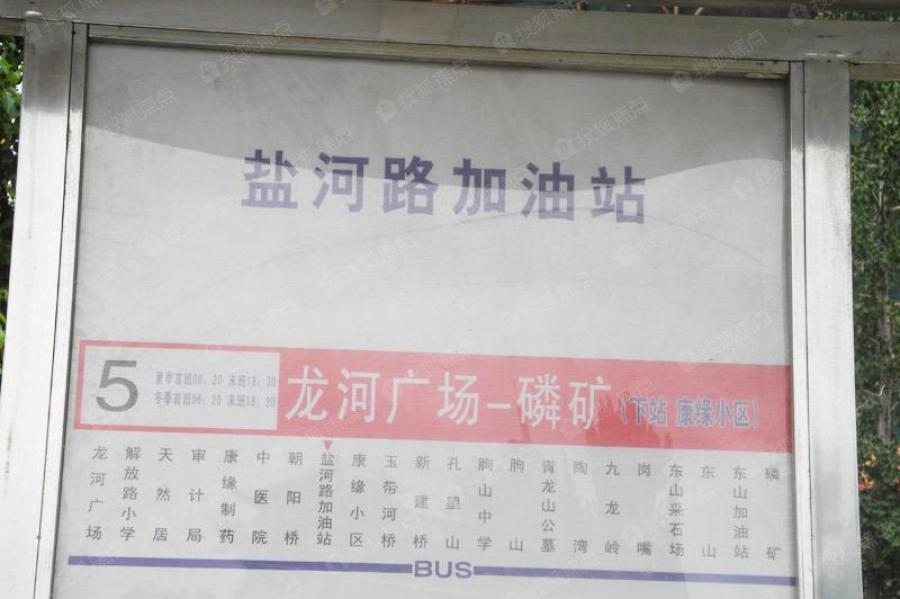 盐河路加油站
5
夏季首班06:20 末班18:30
冬季首班06:20 末班18:20
龙河广场-磷矿(下站 康缘小区)
龙河广场
解放路小学
天然居
审计局
康缘制药
中医院
朝阳桥
盐河路加油站
康缘小区
玉带河桥
新建桥
孔望山
朐山中学
朐山
青龙山公墓
陶湾
九龙岭
岗嘴
东山采石场
东山
东山加油站
磷矿
BUS
搜狐焦点